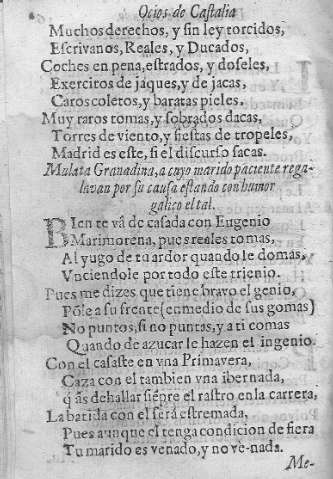 Ocios de Castalia
Muchos derechos, y sin ley torcidos,
Escrivanos, Reales, y Ducados,
Coches en pena, estrados, y doseles,
Exercitos de jaques, y de jacas,
Caros coletos, y baratas pieles.
Muy raros tomas, y sobrados dacas,
Torres de viento, y fiestas de tropeles,
Madrid es este, si el discurso sacas.
Mulata Granadina, a cuyo marido paciente rega-
lavan por su causa estando con humor
galico el tal.
BIen te vâ de casada con Eugenio
Marimorena, pues reales tomas,
Al yugo de tu ardor quando le domas,
Vnciendole por todo este trienio.
Pues me dizes que tiene bravo el genio,
Põle a su frente (en medio de sus gomas)
No puntos, si no puntas, y a ti comas
Quando de azucar le hazen el ingenio.
Con el casaste en vna Primavera,
Caza con el tambien vna ibernada,
q̃ âs de hallar siẽpre el rastro en la carrera,
La batida con el serâ estremada,
Pues aunque el tenga condicion de fiera
Tu marido es venado, y no ve-nada.
Me-